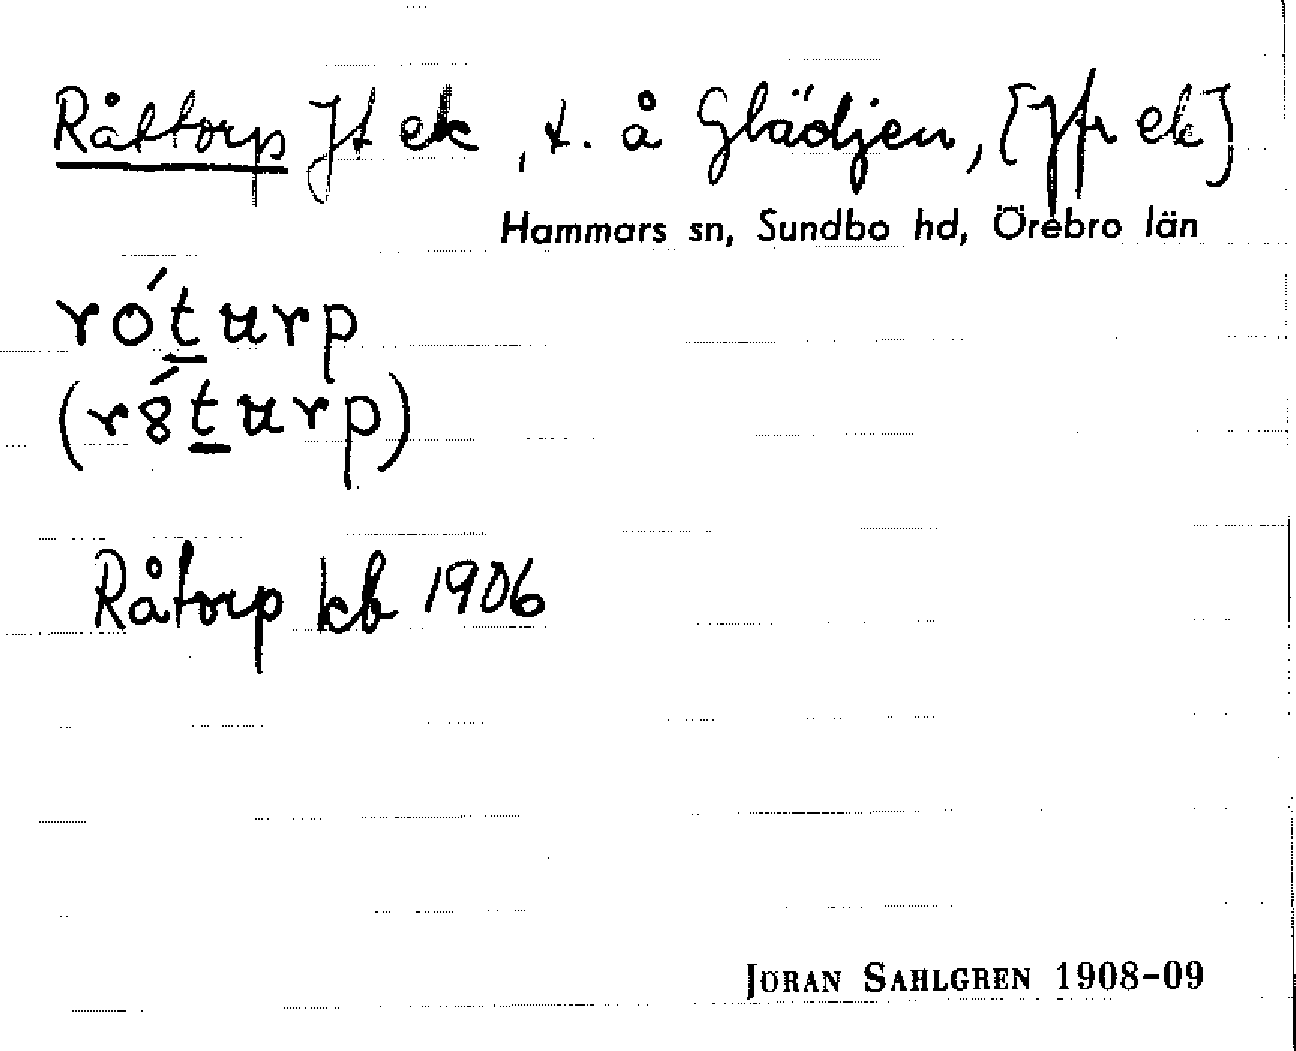 Råttorp Jt ek, t. å Glädjen, [Jfr ek]
Hammars sn, Sundbo hd, Örebro län
róturp
(r8́turp)
Råtorp kb 1906
JÖRAN SAHLGREN 1908-09